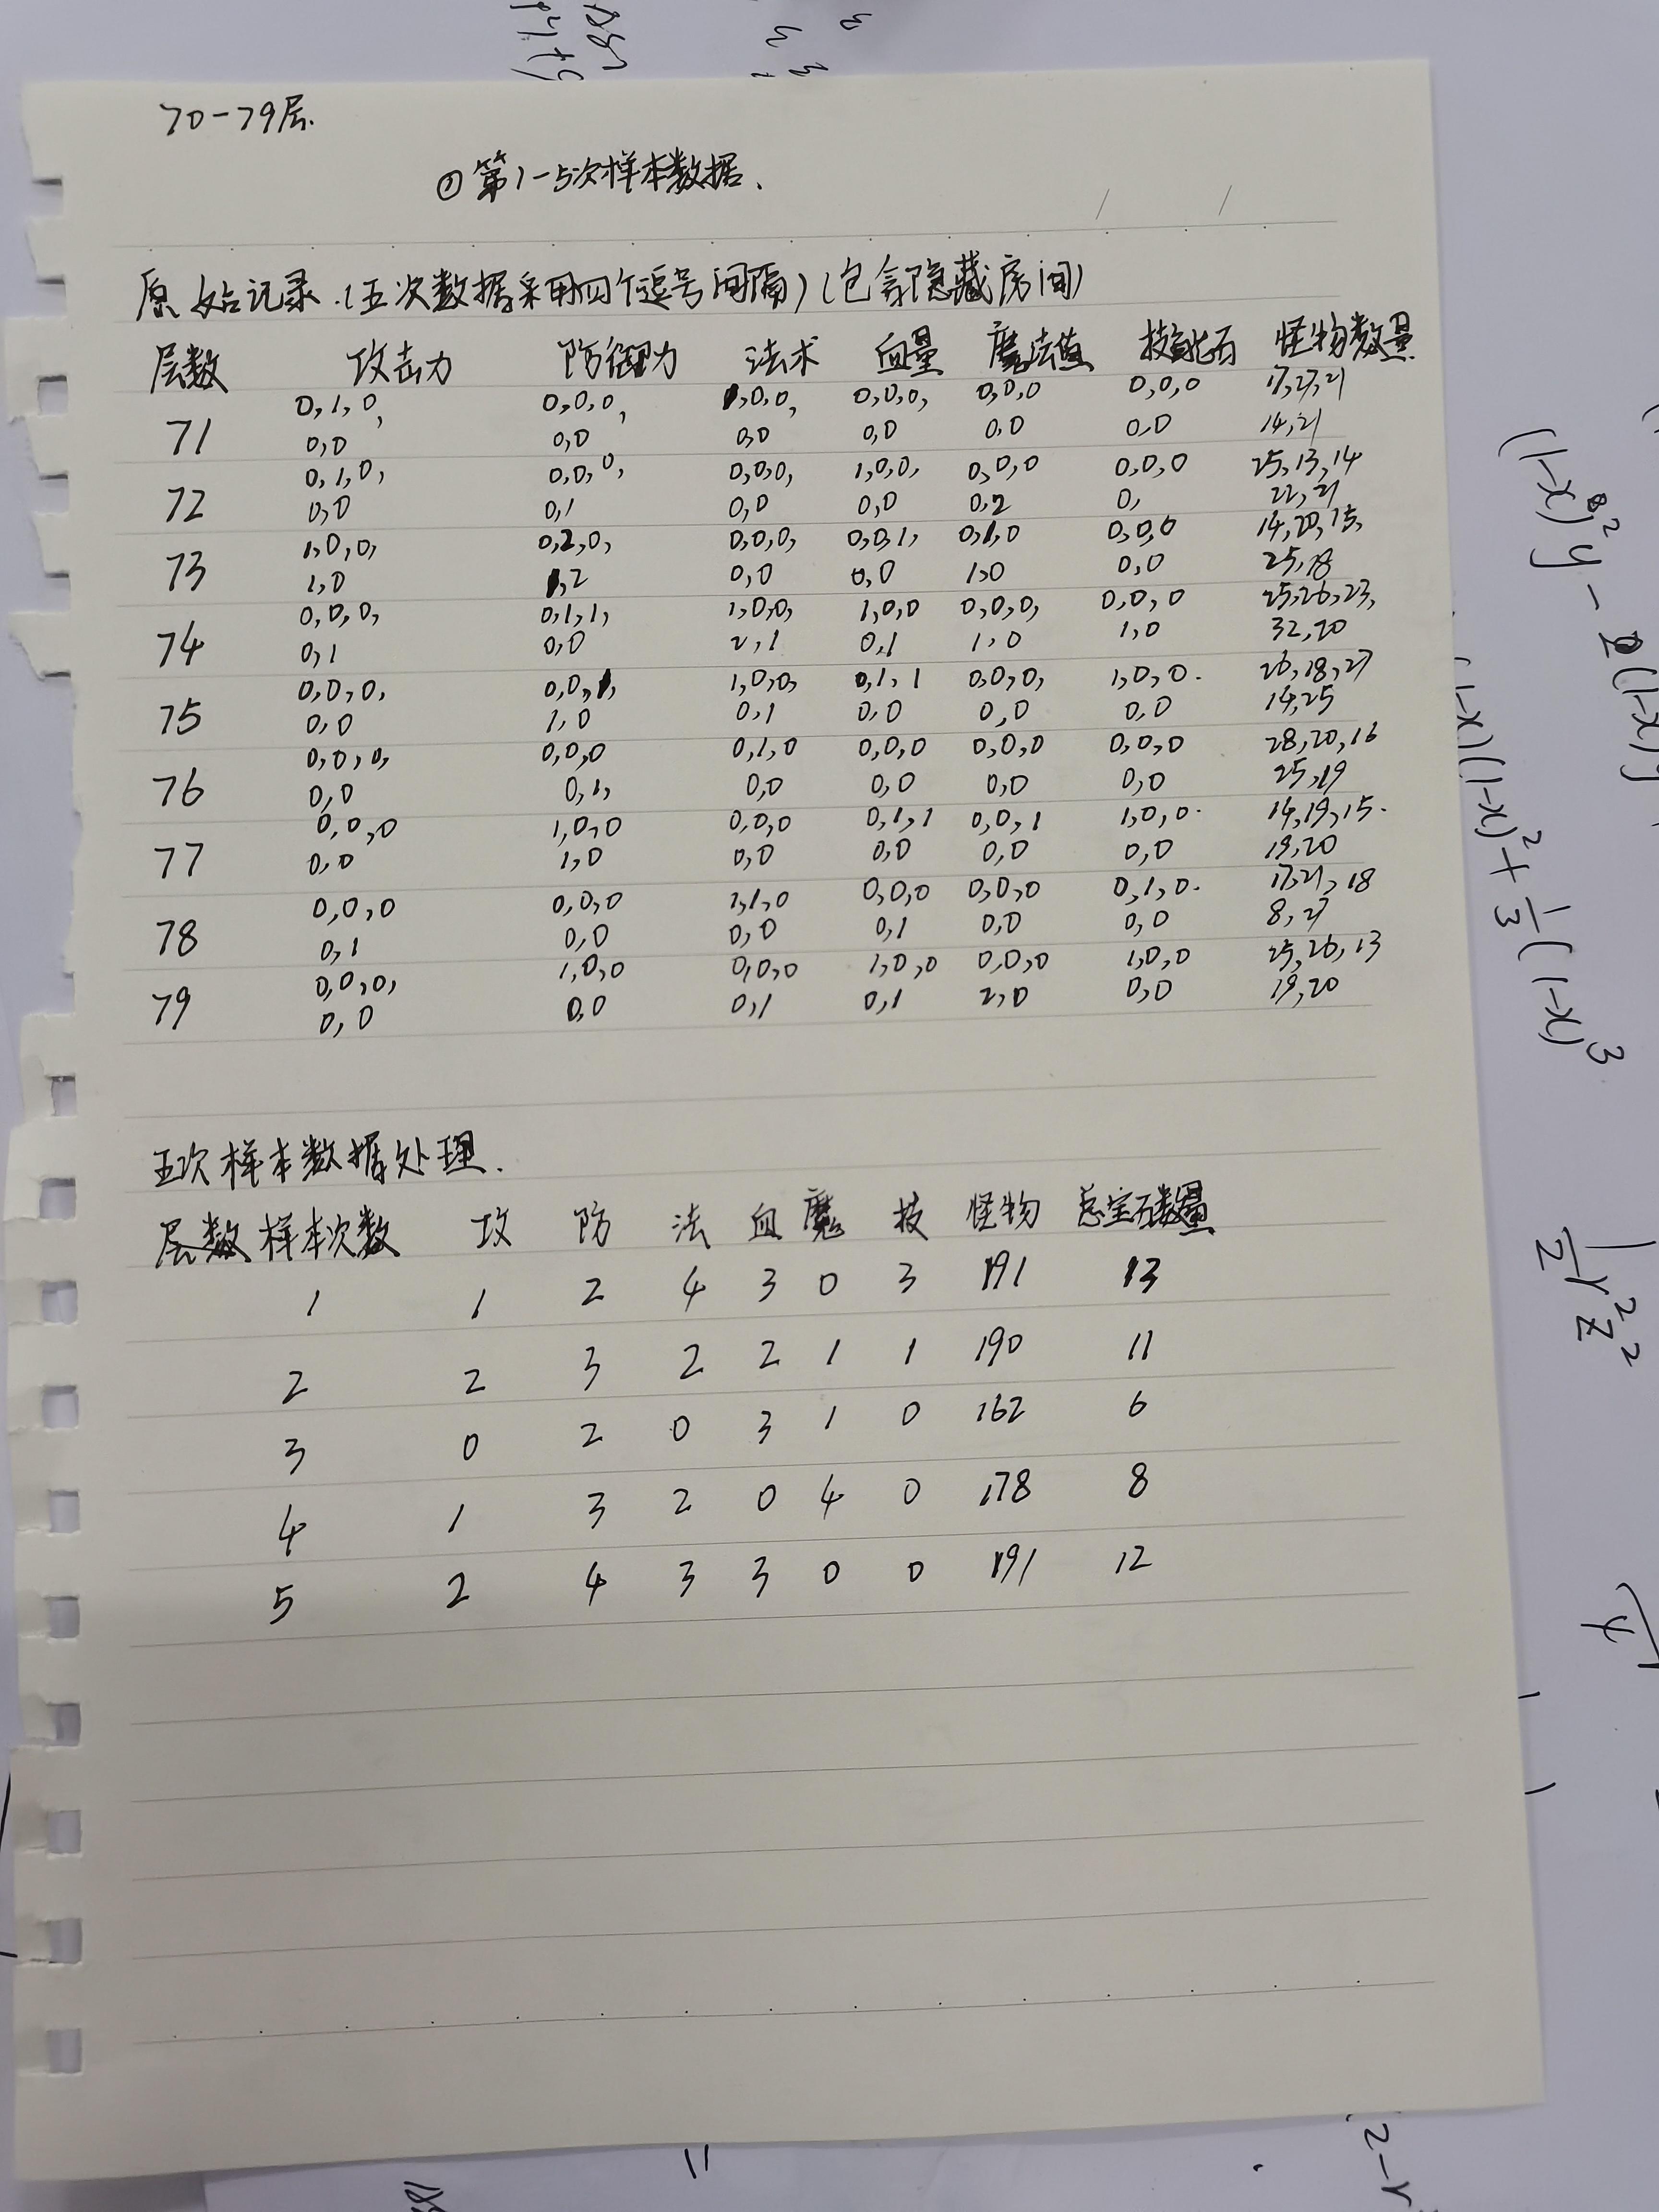 70-79层.
①第1-5次样本数据.
原始记录.(五次数据采用四个逗号间隔)(包含隐藏房间)
层数 攻击力 防御力 法术 血量 魔法值 技能石 怪物数量
0,1,0, 0,0,0, 1,0,0, 0,0,0, 0,0,0 0,0,0 17,27,21
71 0,0 0,0 0,0 0,0 0,0 0,0 14,21
0,1,0, 0,0,0, 0,0,0, 1,0,0, 0,0,0 0,0,0 25,13,14
72 0,0 0,1 0,0 0,0 0,2 0, 22,21
1,0,0, 0,2,0, 0,0,0, 0,0,1, 0,1,0 0,0,0 14,20,15,
73 1,0 1,2 0,0 0,0 1,0 0,0 25,18
0,0,0, 0,1,1, 1,0,0, 1,0,0 0,0,0, 0,0,0 25,26,23,
74 0,1 0,0 2,1 0,1 1,0 1,0 32,20
0,0,0, 0,0,1, 1,0,0, 0,1,1 0,0,0, 1,0,0. 26,18,27
75 0,0 1,0 0,1 0,0 0,0 0,0 14,25
0,0,0, 0,0,0 0,1,0 0,0,0 0,0,0 0,0,0 28,20,16
76 0,0 0,1, 0,0 0,0 0,0 0,0 25,19
0,0,0 1,0,0 0,0,0 0,1,1 0,0,1 1,0,0. 14,19,15.
77 0,0 1,0 0,0 0,0 0,0 0,0 19,20
0,0,0 0,0,0 1,1,0 0,0,0 0,0,0 0,1,0. 17,21,18
78 0,1 0,0 0,0 0,1 0,0 0,0 8,27
0,0,0, 1,0,0 0,0,0 1,0,0 0,0,0 1,0,0 25,26,13
79 0,0 0,0 0,1 0,1 2,0 0,0 19,20
五次样本数据处理.
层数 样本次数 攻 防 法 血 魔 技 怪物 总宝石数量
1 1 2 4 3 0 3 191 13
2 2 3 2 2 1 1 190 11
3 0 2 0 3 1 0 162 6
4 1 3 2 0 4 0 178 8
5 2 4 3 3 0 0 191 12